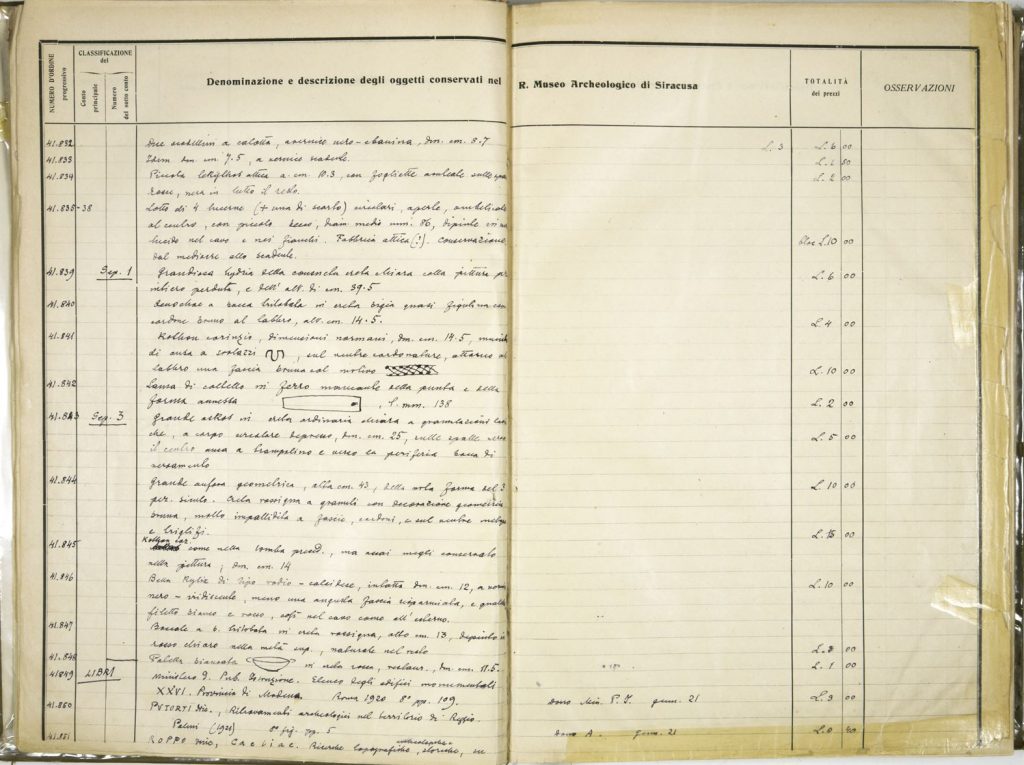 NUMERO D'ORDINE progressivo
CLASSIFICAZIONE del
Conto principale
Numero del sotto conto
Denominazione e descrizione degli oggetti conservati nel R. Museo Archeologico di Siracusa
TOTALITÀ dei prezzi
OSSERVAZIONI
41.832 Due scodellini a calotta, a vernice nero-ebanina, dm. cm. 8.7 L. 3 L. 6 00
41.833 Idem dm. cm. 7.5, a vernice scadente. L. 1 50
41.834 Piccola lekythos attica a. cm. 10.3, con fogliette sulle spalle L. 2 00
rosse, nera in tutto il resto.
41.835-38 Lotto di 4 lucerne (+ una di scarto) circolari, aperte, ombelicate
al centro, con piccolo becco, diam. medio mm. 86, dipinte in
lucido nel cavo e nei fianchi. Fabbrica attica (?). Conservazione L. 10 00
dal mediocre allo scadente.
41.839 Sep. 1 Grandiosa hydria della consueta creta chiara colla pittura L. 6 00
intiero perduta, e dell' alt. di cm. 39.5
41.840 Oenochoe a bocca trilobata in creta bigia quasi figulina con
cordone bruno al labbro, alt. cm. 14.5. L. 4 00
41.841 Kothon corinzio, dimensioni normali, dm. cm. 14.5, munito
di ansa a , sul ventre cordonature, attorno al
labbro una fascia bruna col motivo L. 10 00
41.842 Lama di coltello in ferro mancante della punta e della
forma annessa , l. mm. 138 L. 2 00
41.843 Sep. 3 Grande askos in creta ordinaria chiara a granulazioni
, a corpo circolare depresso, dm. cm. 25, sulle spalle verso L. 5 00
il centro ansa a trampolino e verso la periferia bocca di
versamento
41.844 Grande anfora geometrica, alta cm. 43, della nota forma del 3° L. 10 00
per. siculo. Creta rossigna a granuli con decorazione geometrica
bruna, molto impallidita a fascie, cordoni, e sul ventre
e triglifi.
41.845 Kothon cor. come nella tomba preced., ma assai meglio conservato L. 15 00
nella pittura; dm. cm. 14
41.846 Bella Kylix di tipo rodio-calcidese, intatta dm. cm. 12, a vernice L. 10 00
nero-iridiscente, meno una angusta fascia risparmiata, e qualche
filetto bianco e rosso, così nel cavo come all'esterno.
41.847 Boccale a b. trilobata in creta rossigna, alto cm. 13, dipinto in
rosso chiaro nella metà sup., naturale nel resto L. 3 00
41.848 biansata in creta rossa, restaur., dm. cm. 11.5. L. 1 00
41849 LIBRI Ministero d. Pub. Istruzione. Elenco degli edifici monumentali
XXVI. Provincia di Modena. Roma 1920 8° pp. 109. Dono Min. P. I. genn. 21 L. 3 00
41.850 PUTORTÌ Nic., Ritrovamenti archeologici nel territorio di Reggio.
Palmi (1921) 8° fig. pp. 5 Dono A. Genn. 21 L. 0 50
41.851 ROPPO Caeliae. Ricerche topografiche, storiche,